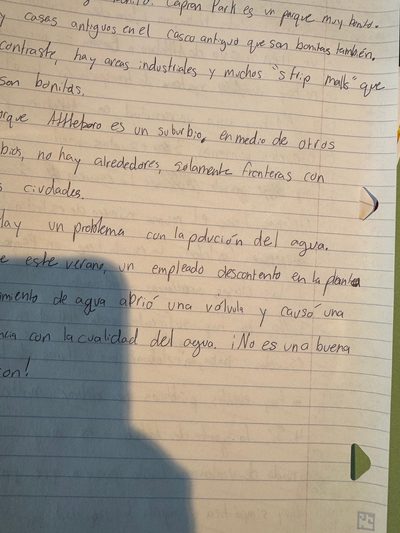 Capron Park es un parque muy bonito.
y casas antiguos en el casco antiguo que son bonitas también.
contraste, hay areas industriales y muchos "strip malls" que
son bonitas.
Attleboro es un suburbio, en medio de otros
no hay alrededores, solamente fronteras con
ciudades.
Hay un problema con la polución del agua.
este verano, un empleado descontento en la planta
de agua abrió una válvula y causó una
con la cualidad del agua. ¡No es una buena